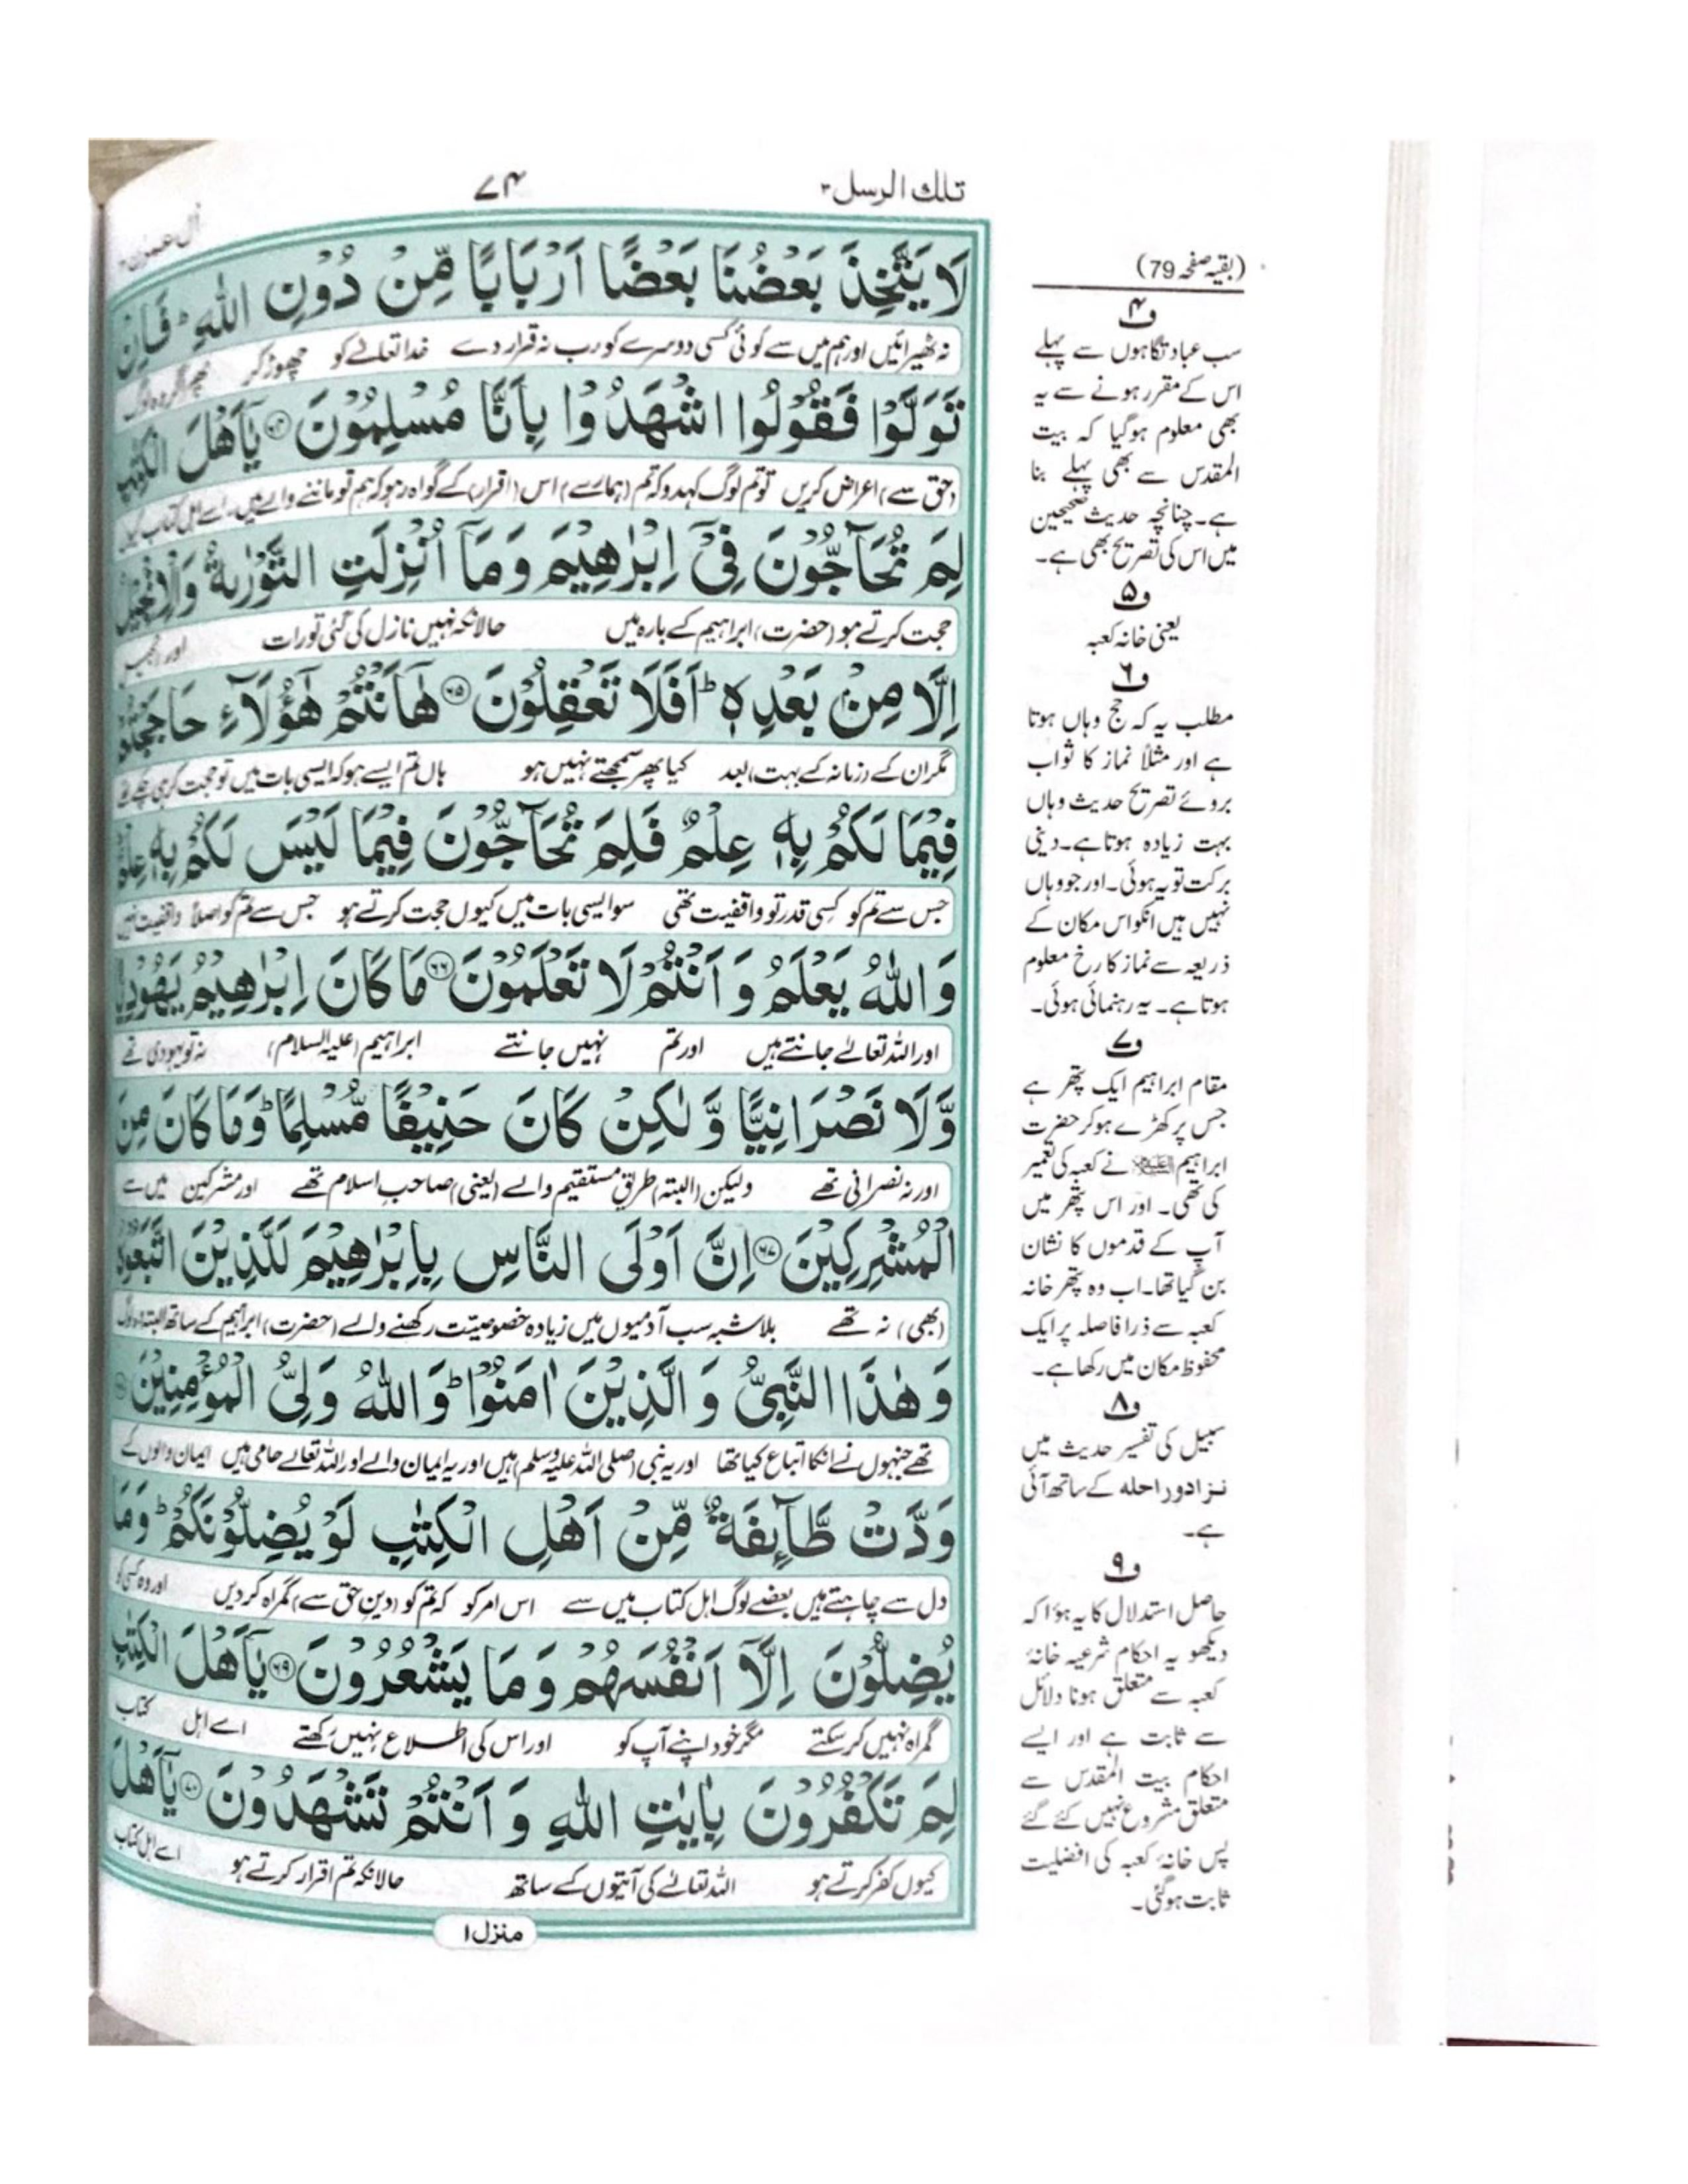 تلك الرسل ٣
٧٤
اٰل عمرٰن ٣
لَا يَتَّخِذَ بَعْضُنَا بَعْضًا اَرْبَابًا مِّنْ دُوْنِ اللّٰهِ ؕ فَاِنْ
نہ ٹھیرائیں اور ہم میں سے کوئی کسی دوسرے کو رب نہ قرار دے خدا تعالےٰ کو چھوڑ کر پھر اگر وہ لوگ
تَوَلَّوْا فَقُوْلُوا اشْهَدُوْا بِاَنَّا مُسْلِمُوْنَ ﴿۶۴﴾ يٰۤاَهْلَ الْكِتٰبِ
(حق سے) اعراض کریں تو تم لوگ کہدو کہ تم (ہمارے) اس (اقرار) کے گواہ رہو کہ ہم تو ماننے والے ہیں۔ اے اہل کتاب کیوں
لِمَ تُحَآجُّوْنَ فِىْۤ اِبْرٰهِيْمَ وَمَاۤ اُنْزِلَتِ التَّوْرٰىةُ وَالْاِنْجِيْلُ
حجت کرتے ہو (حضرت) ابراہیم کے بارہ میں حالانکہ نہیں نازل کی گئی تورات اور انجیل
اِلَّا مِنْۢ بَعْدِهٖ ؕ اَفَلَا تَعْقِلُوْنَ ﴿۶۵﴾ هٰۤاَنْتُمْ هٰٓؤُلَآءِ حَاجَجْتُمْ
مگر ان کے (زمانہ کے بہت) بعد کیا پھر سمجھتے نہیں ہو ہاں تم ایسے ہو کہ ایسی بات میں تو حجت کر ہی چکے تھے
فِيْمَا لَكُمْ بِهٖ عِلْمٌ فَلِمَ تُحَآجُّوْنَ فِيْمَا لَيْسَ لَكُمْ بِهٖ عِلْمٌ
جس سے تم کو کسی قدر تو واقفیت تھی سو ایسی بات میں کیوں حجت کرتے ہو جس سے تم کو اصلاً واقفیت نہیں
وَاللّٰهُ يَعْلَمُ وَاَنْتُمْ لَا تَعْلَمُوْنَ ﴿۶۶﴾ مَا كَانَ اِبْرٰهِيْمُ يَهُوْدِيًّا
اور اللہ تعالےٰ جانتے ہیں اور تم نہیں جانتے ابراہیم (علیہ السلام) نہ تو یہودی تھے
وَّلَا نَصْرَانِيًّا وَّلٰكِنْ كَانَ حَنِيْفًا مُّسْلِمًا ؕ وَمَا كَانَ مِنَ
اور نہ نصرانی تھے ولیکن (البتہ) طریق مستقیم والے (یعنی) صاحب اسلام تھے اور مشرکین میں سے
الْمُشْرِكِيْنَ ﴿۶۷﴾ اِنَّ اَوْلَى النَّاسِ بِاِبْرٰهِيْمَ لَلَّذِيْنَ اتَّبَعُوْهُ
(بھی) نہ تھے بلاشبہ سب آدمیوں میں زیادہ خصوصیت رکھنے والے (حضرت) ابراہیم کے ساتھ البتہ وہ لوگ
وَهٰذَا النَّبِىُّ وَالَّذِيْنَ اٰمَنُوْا ؕ وَاللّٰهُ وَلِىُّ الْمُؤْمِنِيْنَ ﴿۶۸﴾
تھے جنہوں نے انکا اتباع کیا تھا اور یہ نبی (صلی اللہ علیہ وسلم) ہیں اور یہ ایمان والے اور اللہ تعالےٰ حامی ہیں ایمان والوں کے
وَدَّتْ طَّآئِفَةٌ مِّنْ اَهْلِ الْكِتٰبِ لَوْ يُضِلُّوْنَكُمْ ؕ وَمَا
دل سے چاہتے ہیں بعضے لوگ اہل کتاب میں سے اس امر کو کہ تم کو (دین حق سے) گمراہ کر دیں اور وہ کسی کو
يُضِلُّوْنَ اِلَّاۤ اَنْفُسَهُمْ وَمَا يَشْعُرُوْنَ ﴿۶۹﴾ يٰۤاَهْلَ الْكِتٰبِ
گمراہ نہیں کر سکتے مگر خود اپنے آپ کو اور اس کی اطلاع نہیں رکھتے اے اہل کتاب
لِمَ تَكْفُرُوْنَ بِاٰيٰتِ اللّٰهِ وَاَنْتُمْ تَشْهَدُوْنَ ﴿۷۰﴾ يٰۤاَهْلَ
کیوں کفر کرتے ہو اللہ تعالےٰ کی آیتوں کے ساتھ حالانکہ تم اقرار کرتے ہو اے اہل کتاب
منزل ۱
(بقیہ صفحہ 79)
ف۴
سب عبادتگاہوں سے پہلے
اس کے مقرر ہونے سے یہ
بھی معلوم ہوگیا کہ بیت
المقدس سے بھی پہلے بنا
ہے۔ چنانچہ حدیث صحیحین
میں اس کی تصریح بھی ہے۔
ف۵
یعنی خانہ کعبہ
ف۶
مطلب یہ کہ حج وہاں ہوتا
ہے اور مثلاً نماز کا ثواب
بروئے تصریح حدیث وہاں
بہت زیادہ ہوتا ہے۔ دینی
برکت تو یہ ہوئی۔ اور جو وہاں
نہیں ہیں انکو اس مکان کے
ذریعہ سے نماز کا رخ معلوم
ہوتا ہے۔ یہ رہنمائی ہوئی۔
ف۷
مقام ابراہیم ایک پتھر ہے
جس پر کھڑے ہو کر حضرت
ابراہیم علیہ السلام نے کعبہ کی تعمیر
کی تھی۔ اور اس پتھر میں
آپ کے قدموں کا نشان
بن گیا تھا۔ اب وہ پتھر خانہ
کعبہ سے ذرا فاصلہ پر ایک
محفوظ مکان میں رکھا ہے۔
ف۸
سبیل کی تفسیر حدیث میں
نزادور احلہ کے ساتھ آئی
ہے۔
ف۹
حاصل استدلال کا یہ ہوا کہ
دیکھو یہ احکام شرعیہ خانۂ
کعبہ سے متعلق ہونا دلائل
سے ثابت ہے اور ایسے
احکام بیت المقدس سے
متعلق مشروع نہیں کئے گئے
پس خانۂ کعبہ کی افضلیت
ثابت ہوگئی۔